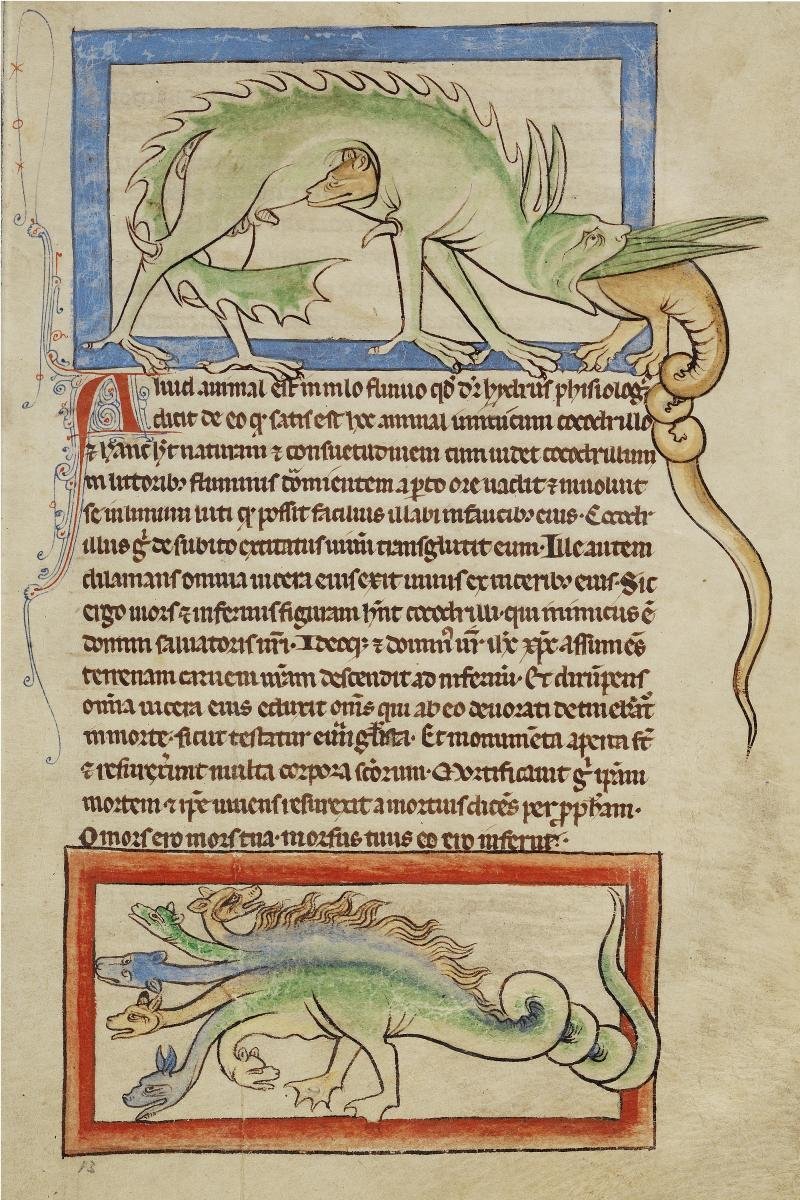 Aliud animal est in nilo fluuio qd dr hydrus phisiolog
dicit de eo qr satis est hoc animal inimicum cocodrillo
⁊ hanc ht naturam ⁊ consuetudinem cum uidet cocodrillum
in littorib; fluminis dormientem apto ore uadit ⁊ inuoluit
se in limum luti qr possit facilius illabi in faucib; eius. Cocodr
illus g̊ de subito excitatus uiuum transglutit eum. Ille autem
dilanians omnia uicera eius exit uiuus ex uiceribꝰ eius. Sic
ergo mors ⁊ infernus figuram hnt cocodrilli. qui inimicus ē
domini saluatoris nri. Ideoq; ⁊ domin' nr ihc xpc. assumēs
terrenam carnem nram descendit ad infernū. Et dirūpens
omia uicera eius eduxit om̄s qui ab eo deuorati detinebant
in morte. sicut testatur euuāglista. Et monumēta aperta st̄
⁊ resurexerunt multa corpora sc̄orum. Mortificauit g̊ ipsam
mortem ⁊ ipe uiuens resurrexit a mortuis dicēs per pph̄am.
O mors ero mors tua. morsus tuus eo ero inferne.
13